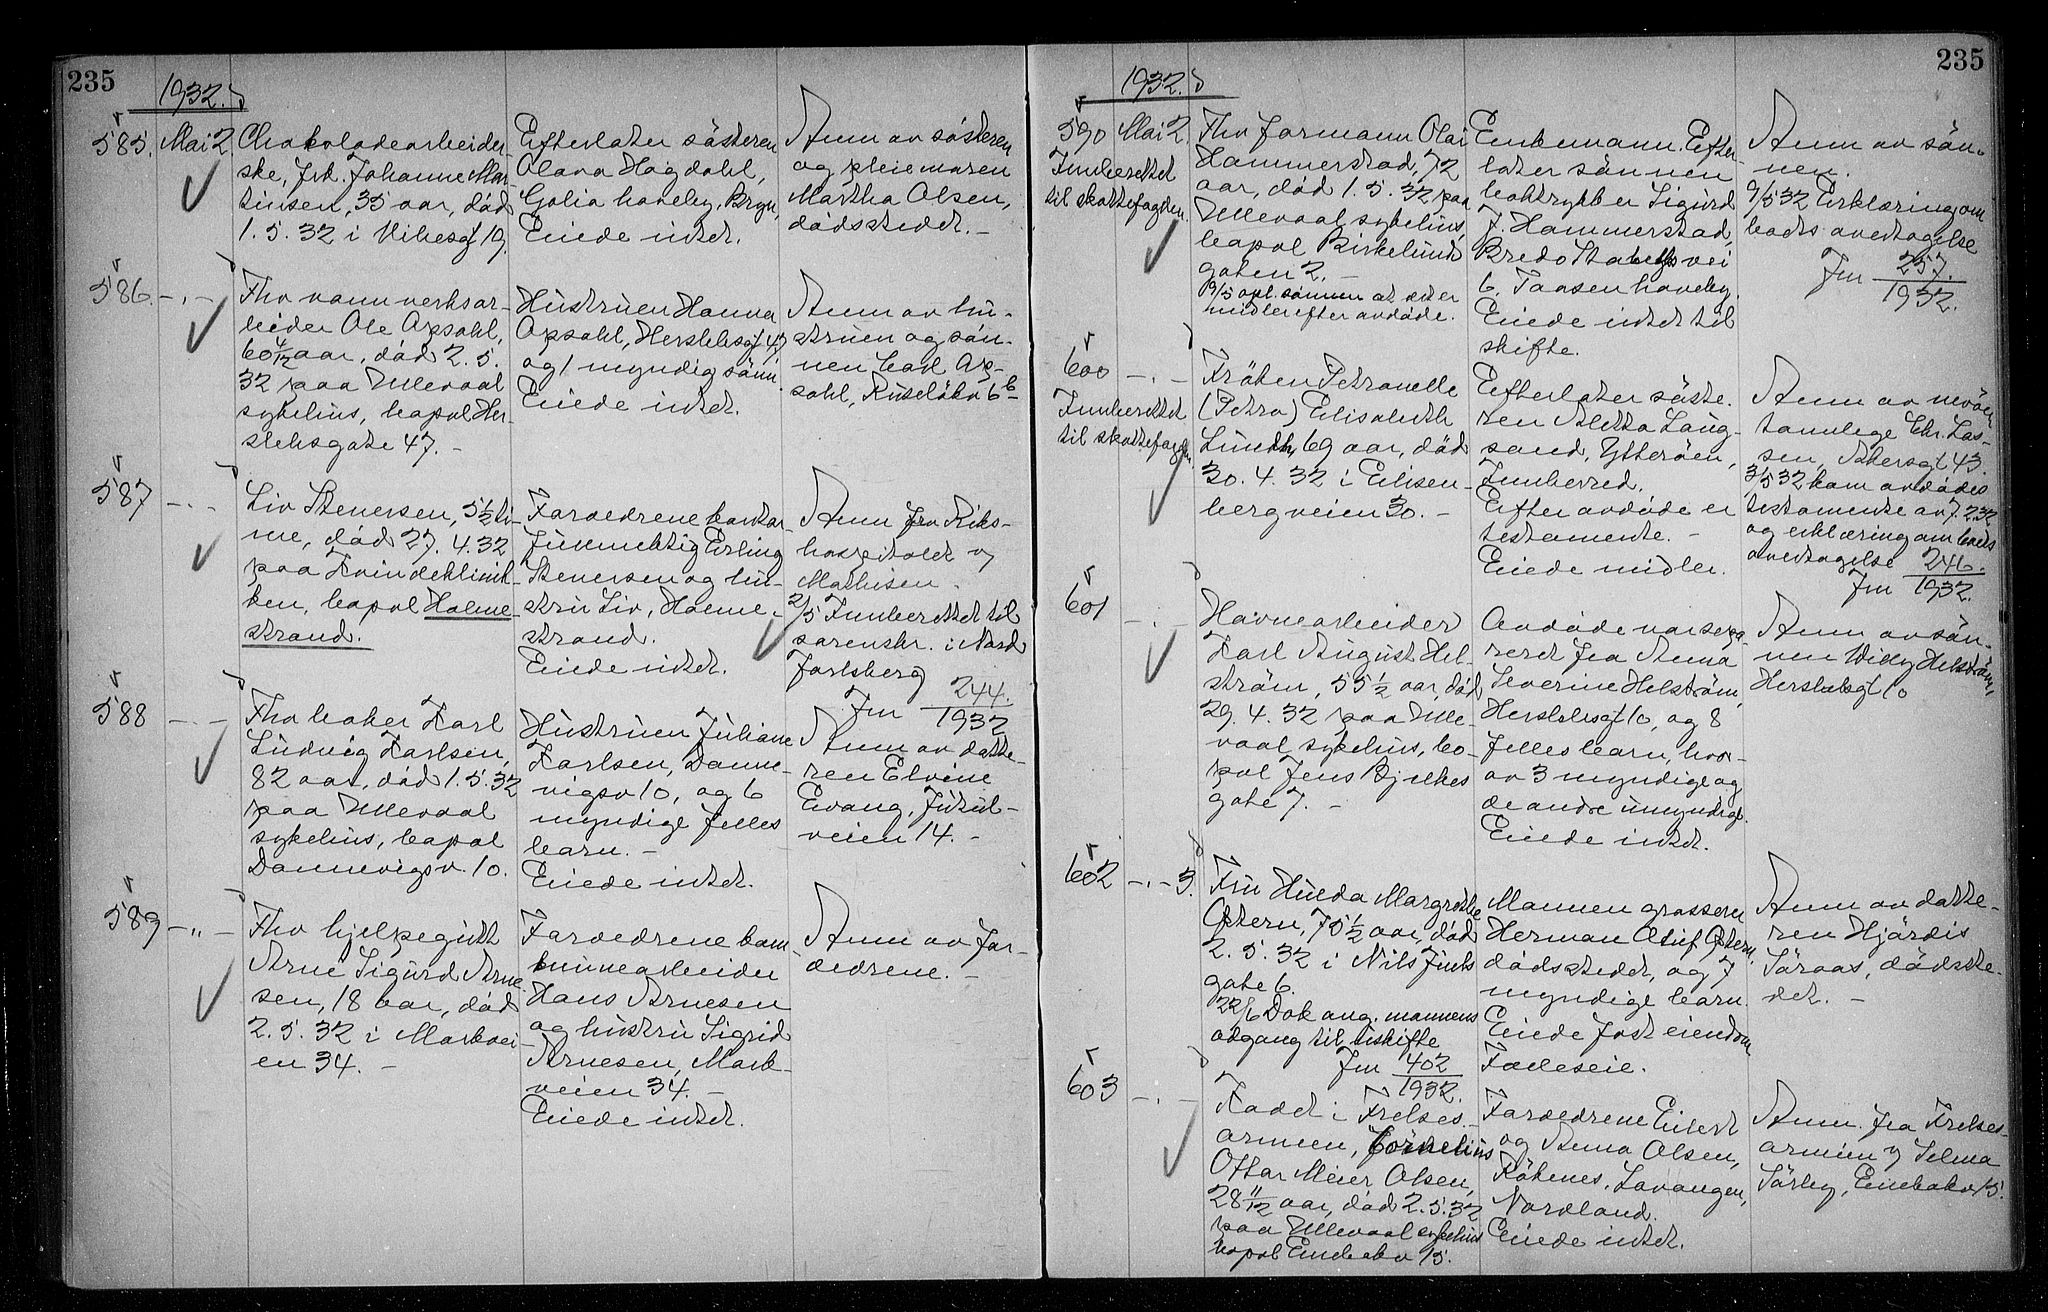 235
1932.
585. Mai 2.
Chokoladearbeider-
ske, frk. Johanne Mar-
tinsen, 35 aar, död
1. 5. 32 i Vibesgt 19.
Efterlater sösteren
Olava Høgdahl,
haveby, Bryn,
Eiede intet.
Anm av sösteren
og pleiemoren
Martha Olsen,
dödsstedet. –
586. – . –
Fhv vannverksar-
beider Ole Opsahl,
60 4/12 aar, död 2. 5.
32 paa Ullevaal
sykehus, bopæl Her-
slebsgate 47. –
Hustruen Hanna
Opsahl, Herslebsgt 47
og 1 myndig sönn.
Eiede intet.
Anm av hu-
struen og sön-
nen Carl Op-
sahl, Ruselökv 6 b
587 – . –
Liv Stenersen, 5 1/2 ti-
me, död 27. 4. 32
paa Kvindeklinik-
ken, bopæl Holme-
strand.
Forældrene kontor-
fuldmektig Erling
Stenersen og hu-
stru Liv, Holme-
strand.
Eiede intet.
Anm fra Riks-
hospitalet v
Mathisen.
2/5 Innberettet til
sorenskr. i Nord
Jarlsberg
Jnr 244.
1932
588 – . –
Fhv baker Karl
Ludvig Karlsen,
82 aar, död 1. 5. 32
paa Ullevaal
sykehus, bopæl
Dannevigsv. 10.
Hustruen Juliane
Karlsen, Danne-
vigsv 10, og 6
myndige felles
barn. –
Eiede intet.
Anm av datte-
ren Elvine
Evang, Jutul-
veien 14. –
589 – " –
Fhv hjelpegutt
Arne Sigurd Arne-
sen, 18 aar, död
2. 5. 32 i Markvei
en 34. –
Forældrene kom-
munearbeider
Hans Arnesen
og hustru Sigrid
Arnesen, Mark-
veien 34. –
Eiede intet.
Anm av for-
ældrene. –
235
1932.
590 Mai 2.
Innberettet
til skattefogden.
Fhv formann Olai
Hammerstad, 72
aar, död 1. 5. 32 paa
Ullevaal sykehus,
bopæl Birkelund
gaten 2. –
19/5 opl. sönnen at det er
midler efter avdöde.
Enkemann. Efter-
later sönnen
boktrykker Sigurd
J. Hammerstad,
Bredo Stabells vei
6, Taasen haveby.
Eiede intet til
skifte.
Anm av sön-
nen.
9/5 32 Erklæring om
boets overtagelse
Jnr 257.
1932.
600 – . –
Innberettet
til skattefogden.
Fröken Petronelle
(Petra) Elisabeth
Lundh, 69 aar, död
30. 4. 32 i Eilisen-
bergveien 30. –
Efterlater söste-
ren Aletta Laug-
sand, Ytteröen,
Innherred.
Efter avdöde er
testamente. –
Eiede midler.
Anm av nevöen
tannlege Chr. Las-
sen, Akersgt 43.
3/5 32 kom avdödes
testamente av 7. 2 32
og erklæring om boets
overtagelse 246.
Jnr 1932.
601 – . –
Havnearbeider
Karl August Hel-
ström, 55 1/2 aar, död
29. 4. 32 paa Ulle-
vaal sykehus, bo-
pæl Jens Bjelkes
gate 7. –
Avdöde var sepa-
rert fra Anna
Severine Helström,
Herslebsgt 10, og 8
felles barn, hvor-
av 3 myndige og
de andre umyndige.
Eiede intet.
Anm av sön-
nen Willy Helström,
Herslebsgt 10
602 – . – 3.
Fru Hulda Margrethe
Östern, 75 1/2 aar, död
2. 5. 32 i Nils Juels
gate 6.
22/6 Dok ang. mannens
adgang til uskifte
Jnr 402
1932.
Mannen grosserer
Herman Oluf Östern,
dödsstedet, og 7
myndige barn
Eiede fast eiendom
Fælleseie.
Anm av datte-
ren Hjördis
Söraas, dödsste-
det. –
603 – . –
Kadet i Frelses-
armeen, Cornelius
Ottar Meier Olsen,
28 11/12 aar, död 2. 5. 32
paa Ullevaal sykehus
bopæl Enebakv 15.
Forældrene Eilert
og Anna Olsen,
Röknes, Lavangen,
Nordland.
Eiede intet.
Anm. fra Frelses-
armeen v Selma
Sörby, Enebakv 15.